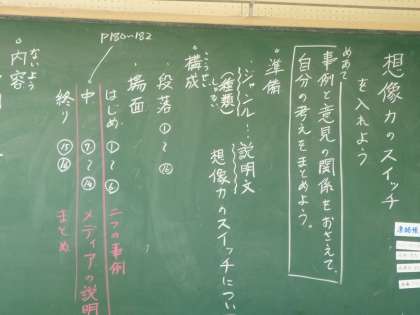 想像力のスイッチ
を入れよう
めあて
事例と意見の関係をおさえて、
自分の考えをまとめよう。
。準備
・ジャンル…説明文
(種類)
想像力のスイッチについ
こうせい
。構成
・段落①〜⑯
・場面
はじめ ①〜⑥ 二つの事例
P180〜182
中 ⑦〜⑭ メディアの説明
終り ⑮⑯ まとめ
ないよう
。内容
連絡帳